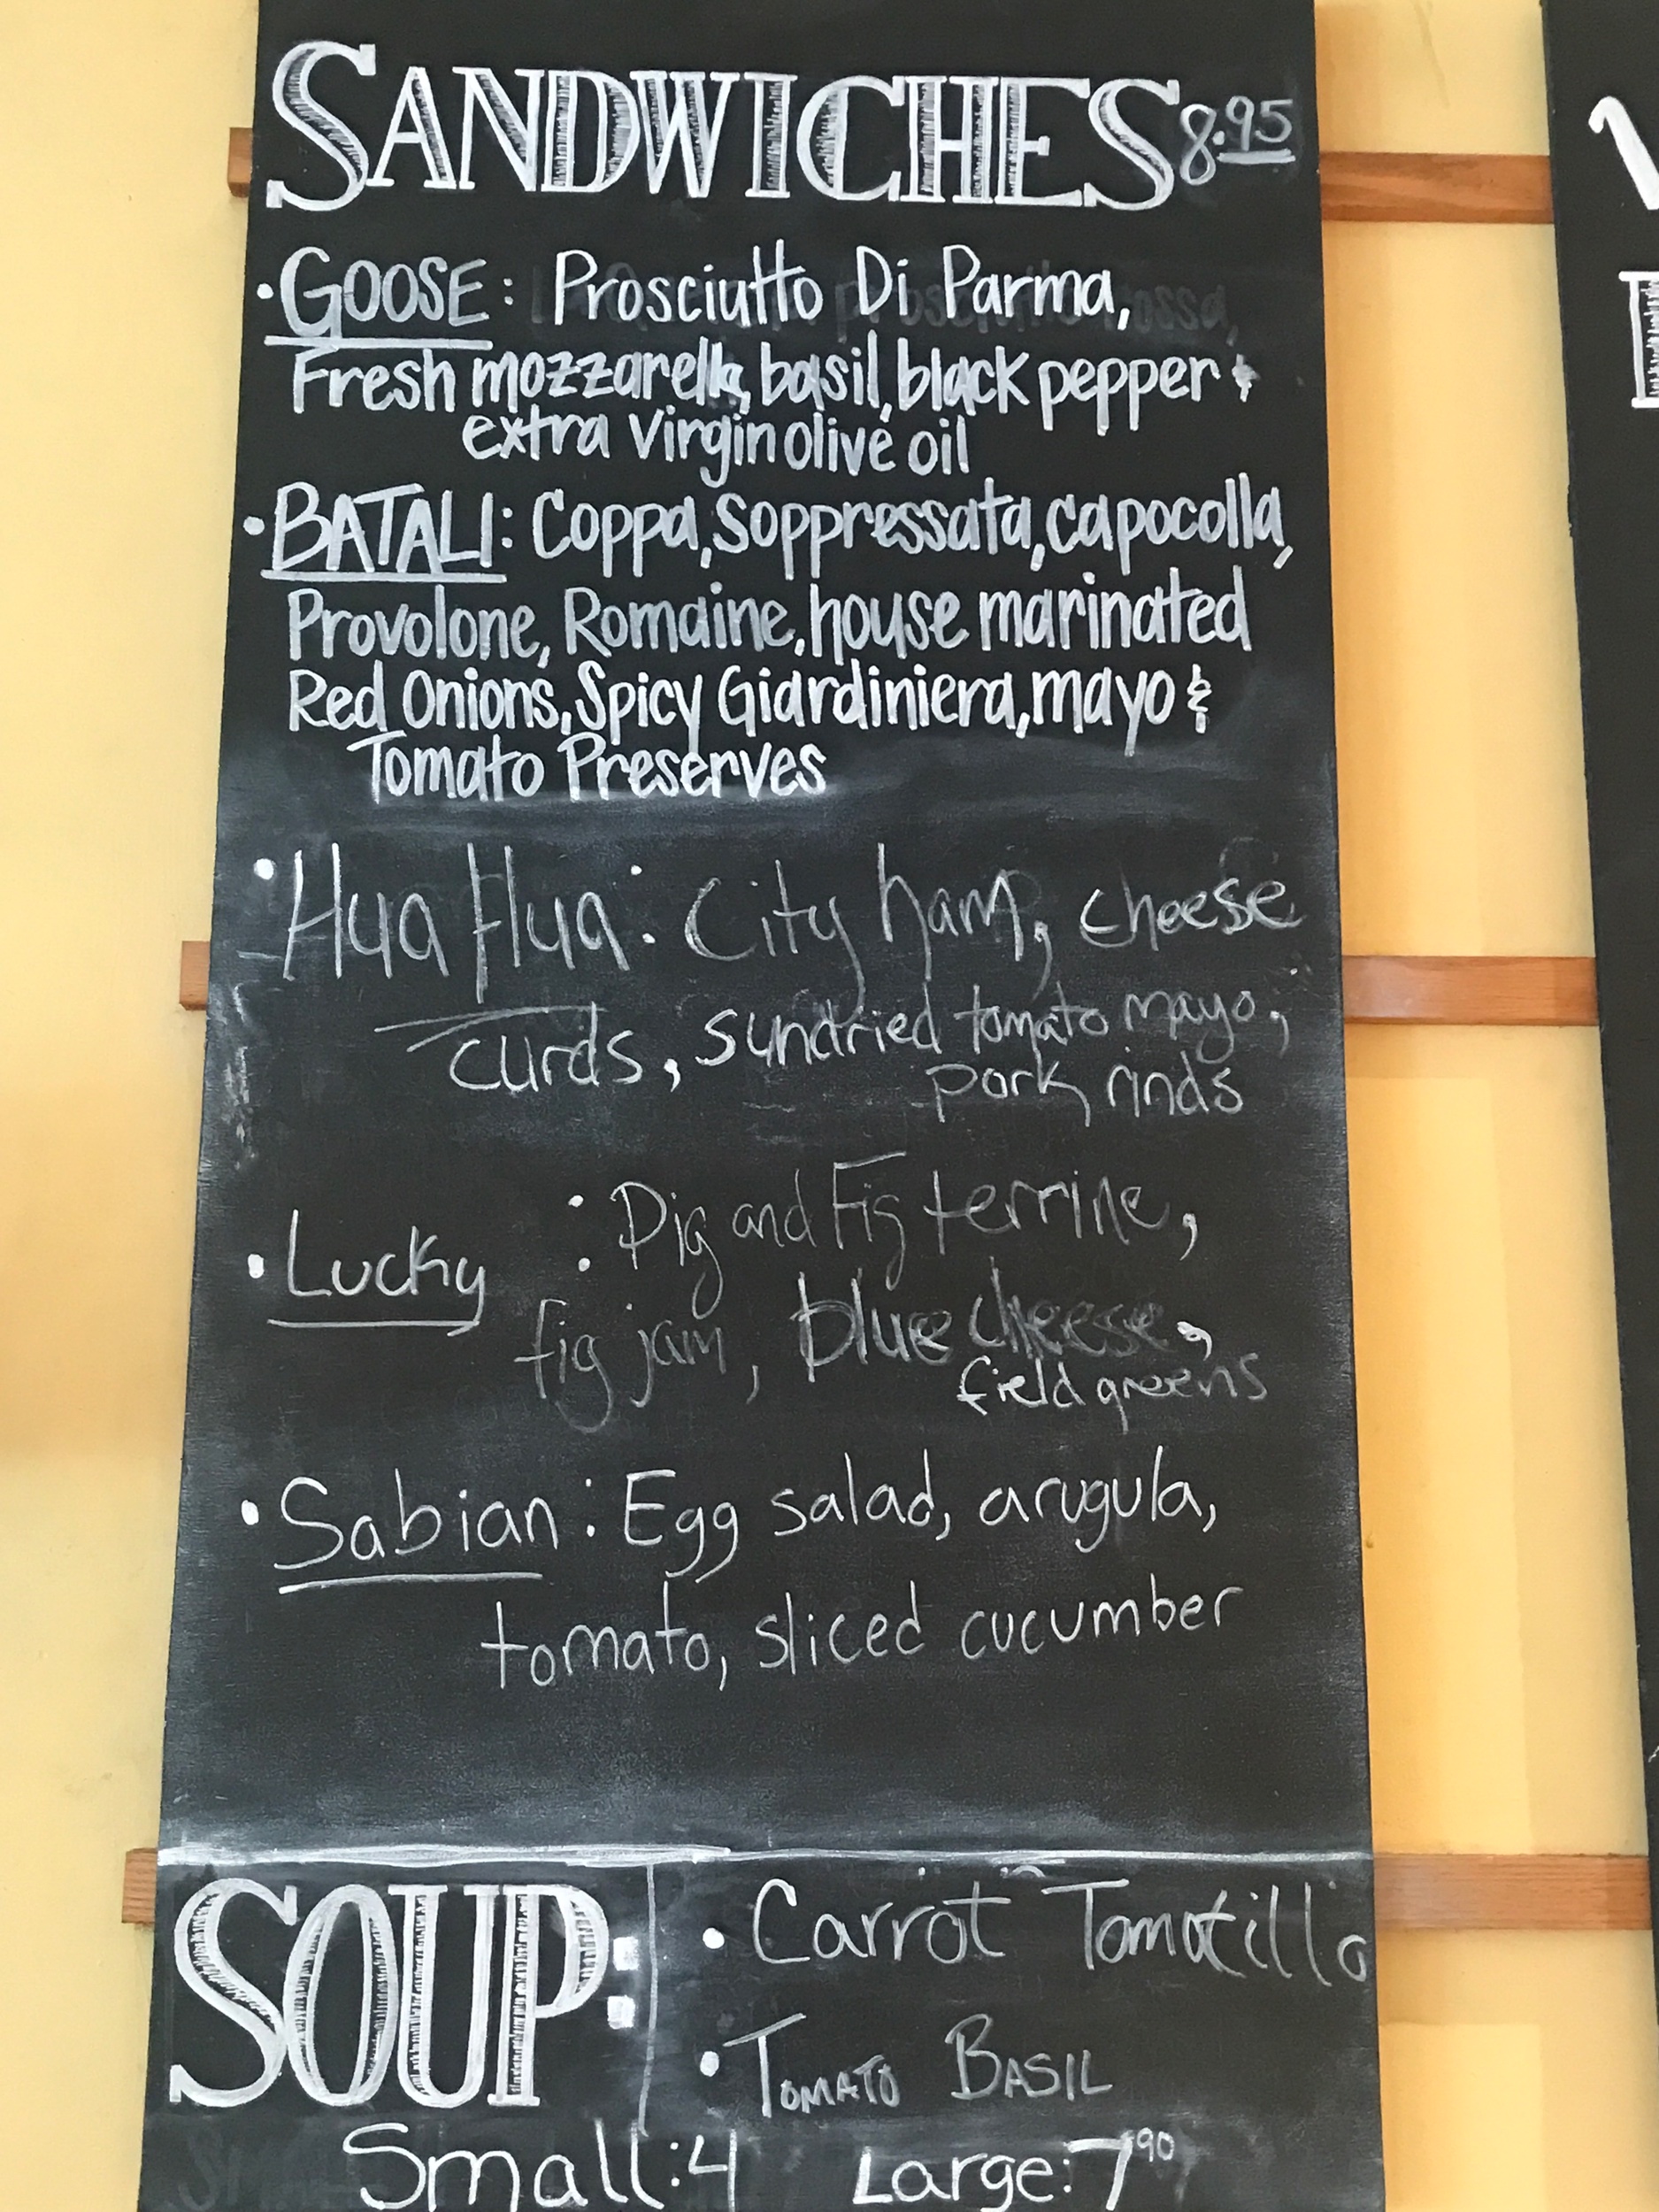 SANDWICHES 8.95
• GOOSE: Prosciutto Di Parma,
Fresh mozzarella, basil, black pepper &
extra Virgin olive oil
• BATALI: Coppa, Soppressata, capocolla,
Provolone, Romaine, house marinated
Red Onions, Spicy Giardiniera, mayo &
Tomato Preserves
• Hua Hua: City ham, cheese
curds, sundried tomato mayo,
pork rinds
• Lucky : Pig and Fig terrine,
fig jam, blue cheese,
field greens
• Sabian: Egg salad, arugula,
tomato, sliced cucumber
SOUP:
• Carrot Tomatillo
• TOMATO BASIL
Small: 4 Large: 7 90